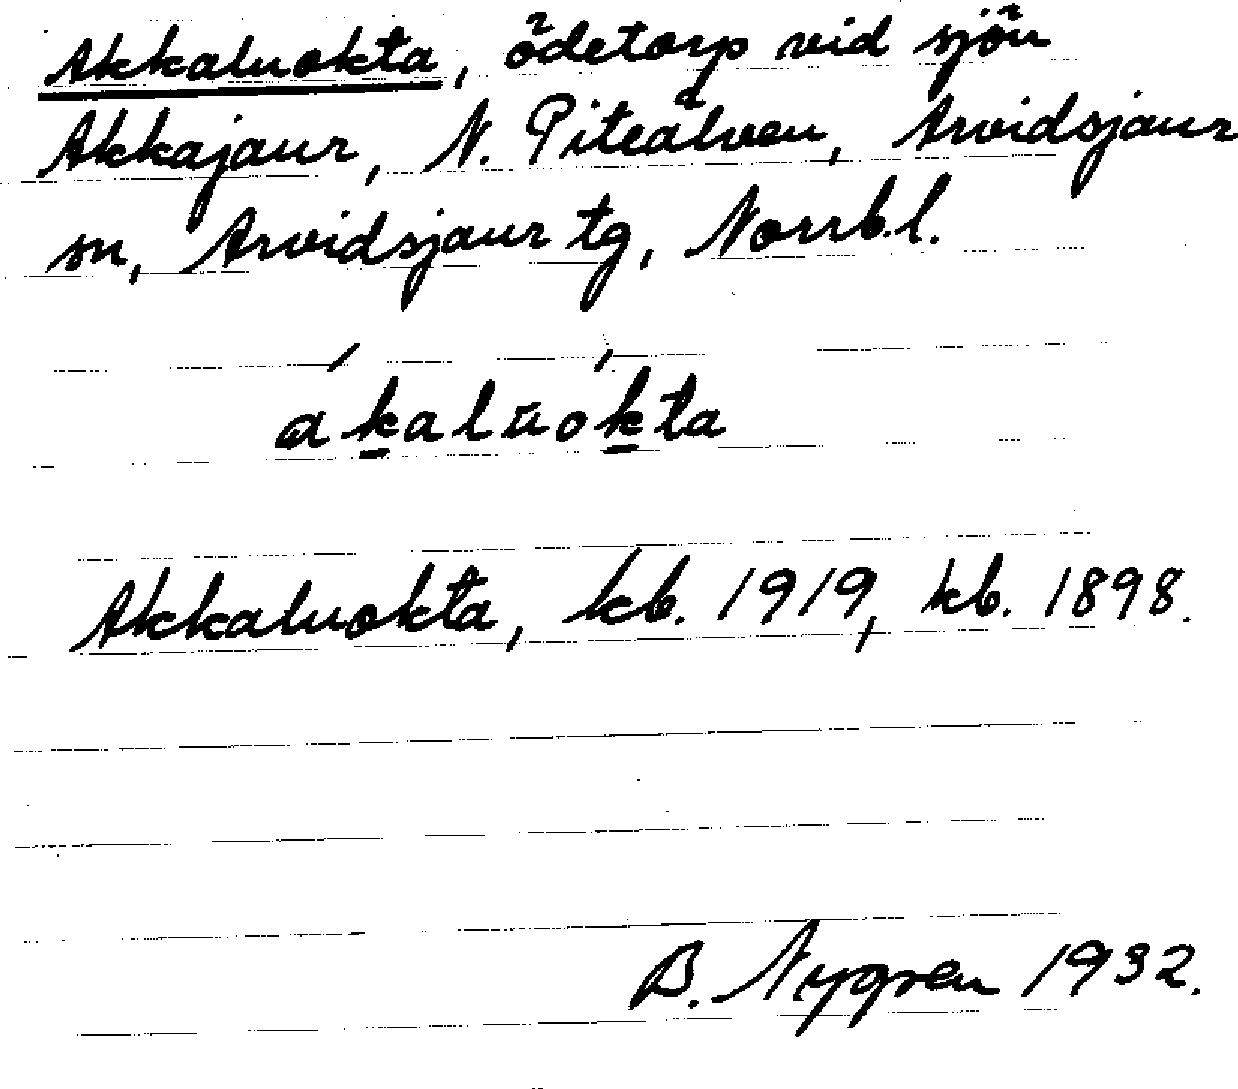 Akkaluokta, ödetorp vid sjön
Akkajaur, N. Piteälven, Arvidsjaur
sn, Arvidsjaur tg, Norrb.l.
ákalŭók̠ta
Akkaluokta, kb. 1919, kb. 1898.
B. Nygren 1932.